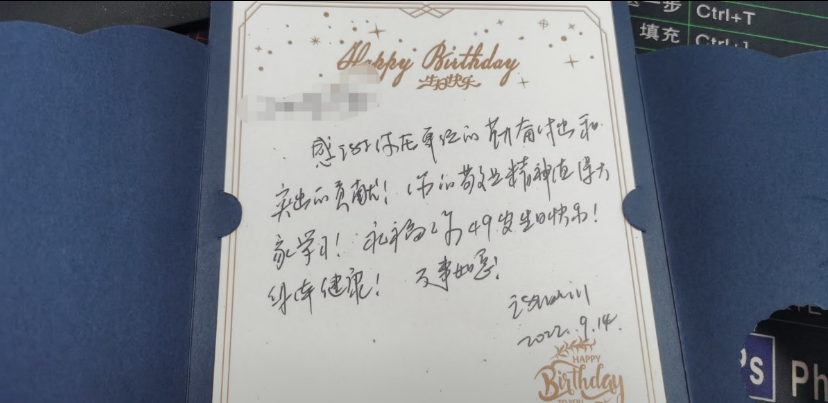 Happy Birthday
生日快乐
感谢你在单位的勤奋付出和
突出的贡献！你的敬业精神值得大
家学习！祝福你49岁生日快乐！
身体健康！万事如意！
2022.9.14.
HAPPY
Birthday
TO YOU
一步
Ctrl+T
填充
Ctrl+
PS
Ph